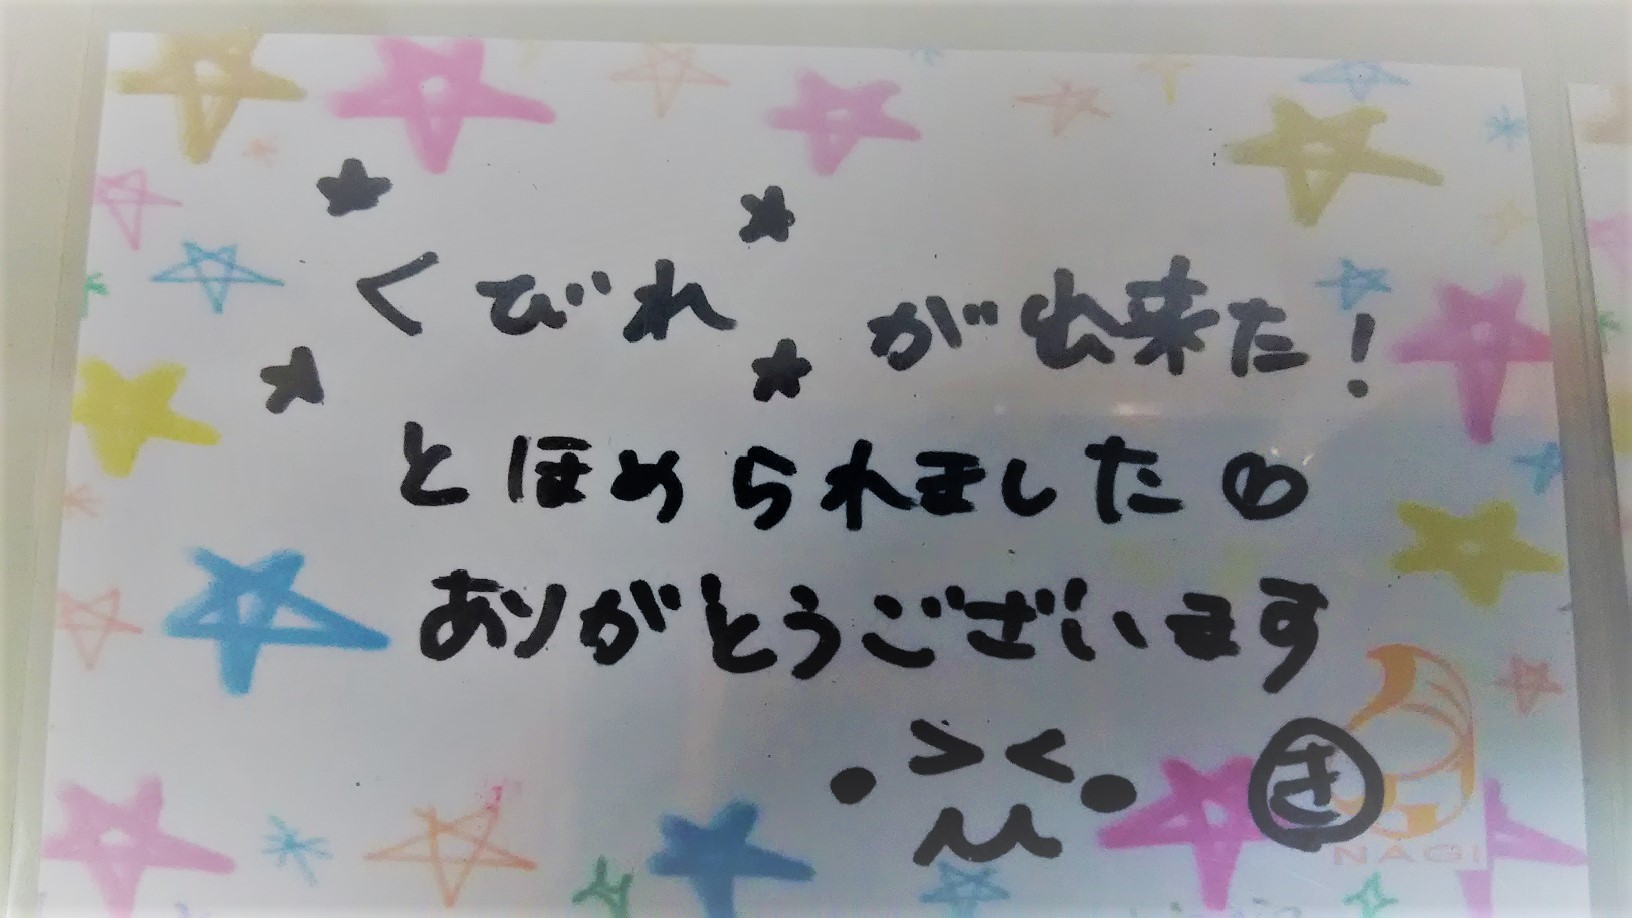 くびれが出来た!
とほめられました♡
ありがとうございます
き
NAGI